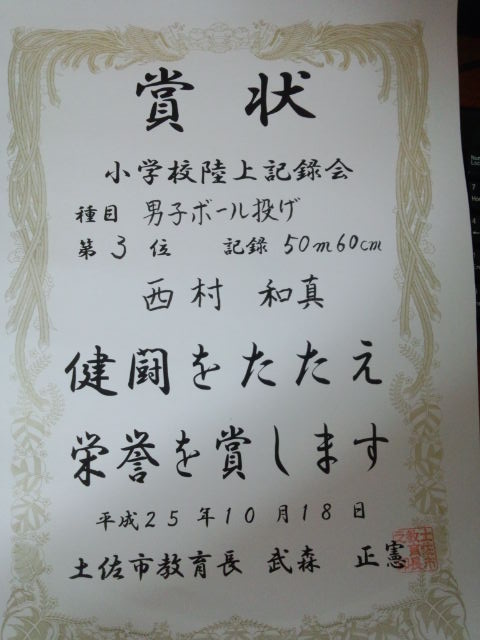 賞状
小学校陸上記録会
種目 男子ボール投げ
第3位 記録 50m60cm
西村 和真
健闘をたたえ
栄誉を賞します
平成25年10月18日
土佐市教育長 武森 正憲